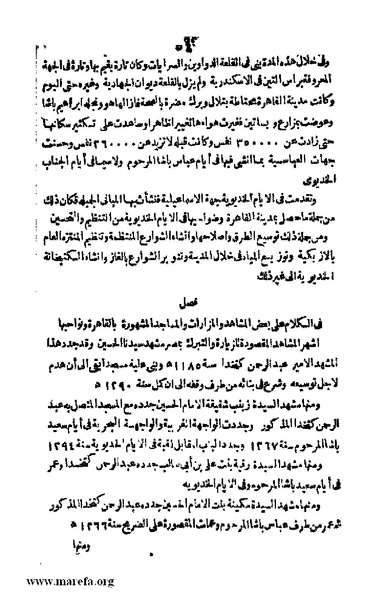 وفى خلال هذه المدة بنى فى القلعة الدواوين والسرايات وكان تارة يقيم بها وتارة فى الجهة
المعروفة براس التين فى الاسكندرية ولم يزل بالقلعة ديوان الجهادية وغيره حتى اليوم
وكانت مدينة القاهرة محاطة بتلال وبرك مضرة بالصحة فازالها هو ونجله ابراهيم باشا
وعوضت بمزارع وبساتين فغيرت هواءها تغييرا ظاهرا وساعدت على تكثير سكانها
حتى زادت عن ٣٥٠٠٠٠ نفس وكانت قبلا لا تزيد عن ٢٦٠٠٠٠ نفس وحسنت
جهات العباسية بما انشى فيها فى أيام عباس باشا المرحوم ولا سيما فى أيام الجناب
الخديوى
وتقدمت فى الايام الخديوية جهة الاسماعيلية فنشأ بها المبانى الجميلة فكان ذلك
من جملة ما حصل بمدينة القاهرة وضواحيها فى الايام الخديوية من التنظيم والتحسين
ومن جملة ذلك توسيع الطرق واصلاحها وانشاء الشوارع المنتظمة وتنظيم المنتزه العام
بالازبكية وتوزيع المياه فى خلال المدينة وتنوير الشوارع بالغاز وانشاء الكتبخانة
الخديوية الى غير ذلك
فصل
فى الكلام على بعض المشاهد والمزارات والمساجد المشهورة بالقاهرة ونواحيها
اشهر المشاهد المقصودة للزيارة والتبرك بمصر مشهد سيدنا الحسين وقد جدد هذا
المشهد الامير عبد الرحمن كتخدا سنة ١١٨٥ ه وبنى عليه مسجدا بقى الى أن هدم
لاجل توسيعه وشرع فى بنائه من طرف وقفه الى ان كمل سنة ١٢٩٠ ه
ومنها مشهد السيدة زينب شقيقة الامام الحسين جدده مع المسجد المتصل به عبد
الرحمن كتخدا المذكور وجددت الواجهة الغربية والواجهة البحرية فى أيام سعيد
باشا المرحوم سنة ١٢٦٧ وجدد الباب المقابل للقبة فى الايام الخديوية سنة ١٢٩٤
ومنها مشهد السيدة رقية بنت على بن أبى طالب جدده عبد الرحمن كتخدا وعمر
فى أيام سعيد باشا المرحوم وفى الايام الخديوية
ومنها مشهد السيدة سكينة بنت الامام الحسين جدده عبد الرحمن كتخدا المذكور
ثم عمر من طرف عباس باشا المرحوم وعملت المقصورة على الضريح سنة ١٢٦٦ ه
ومنها
www.marefa.org